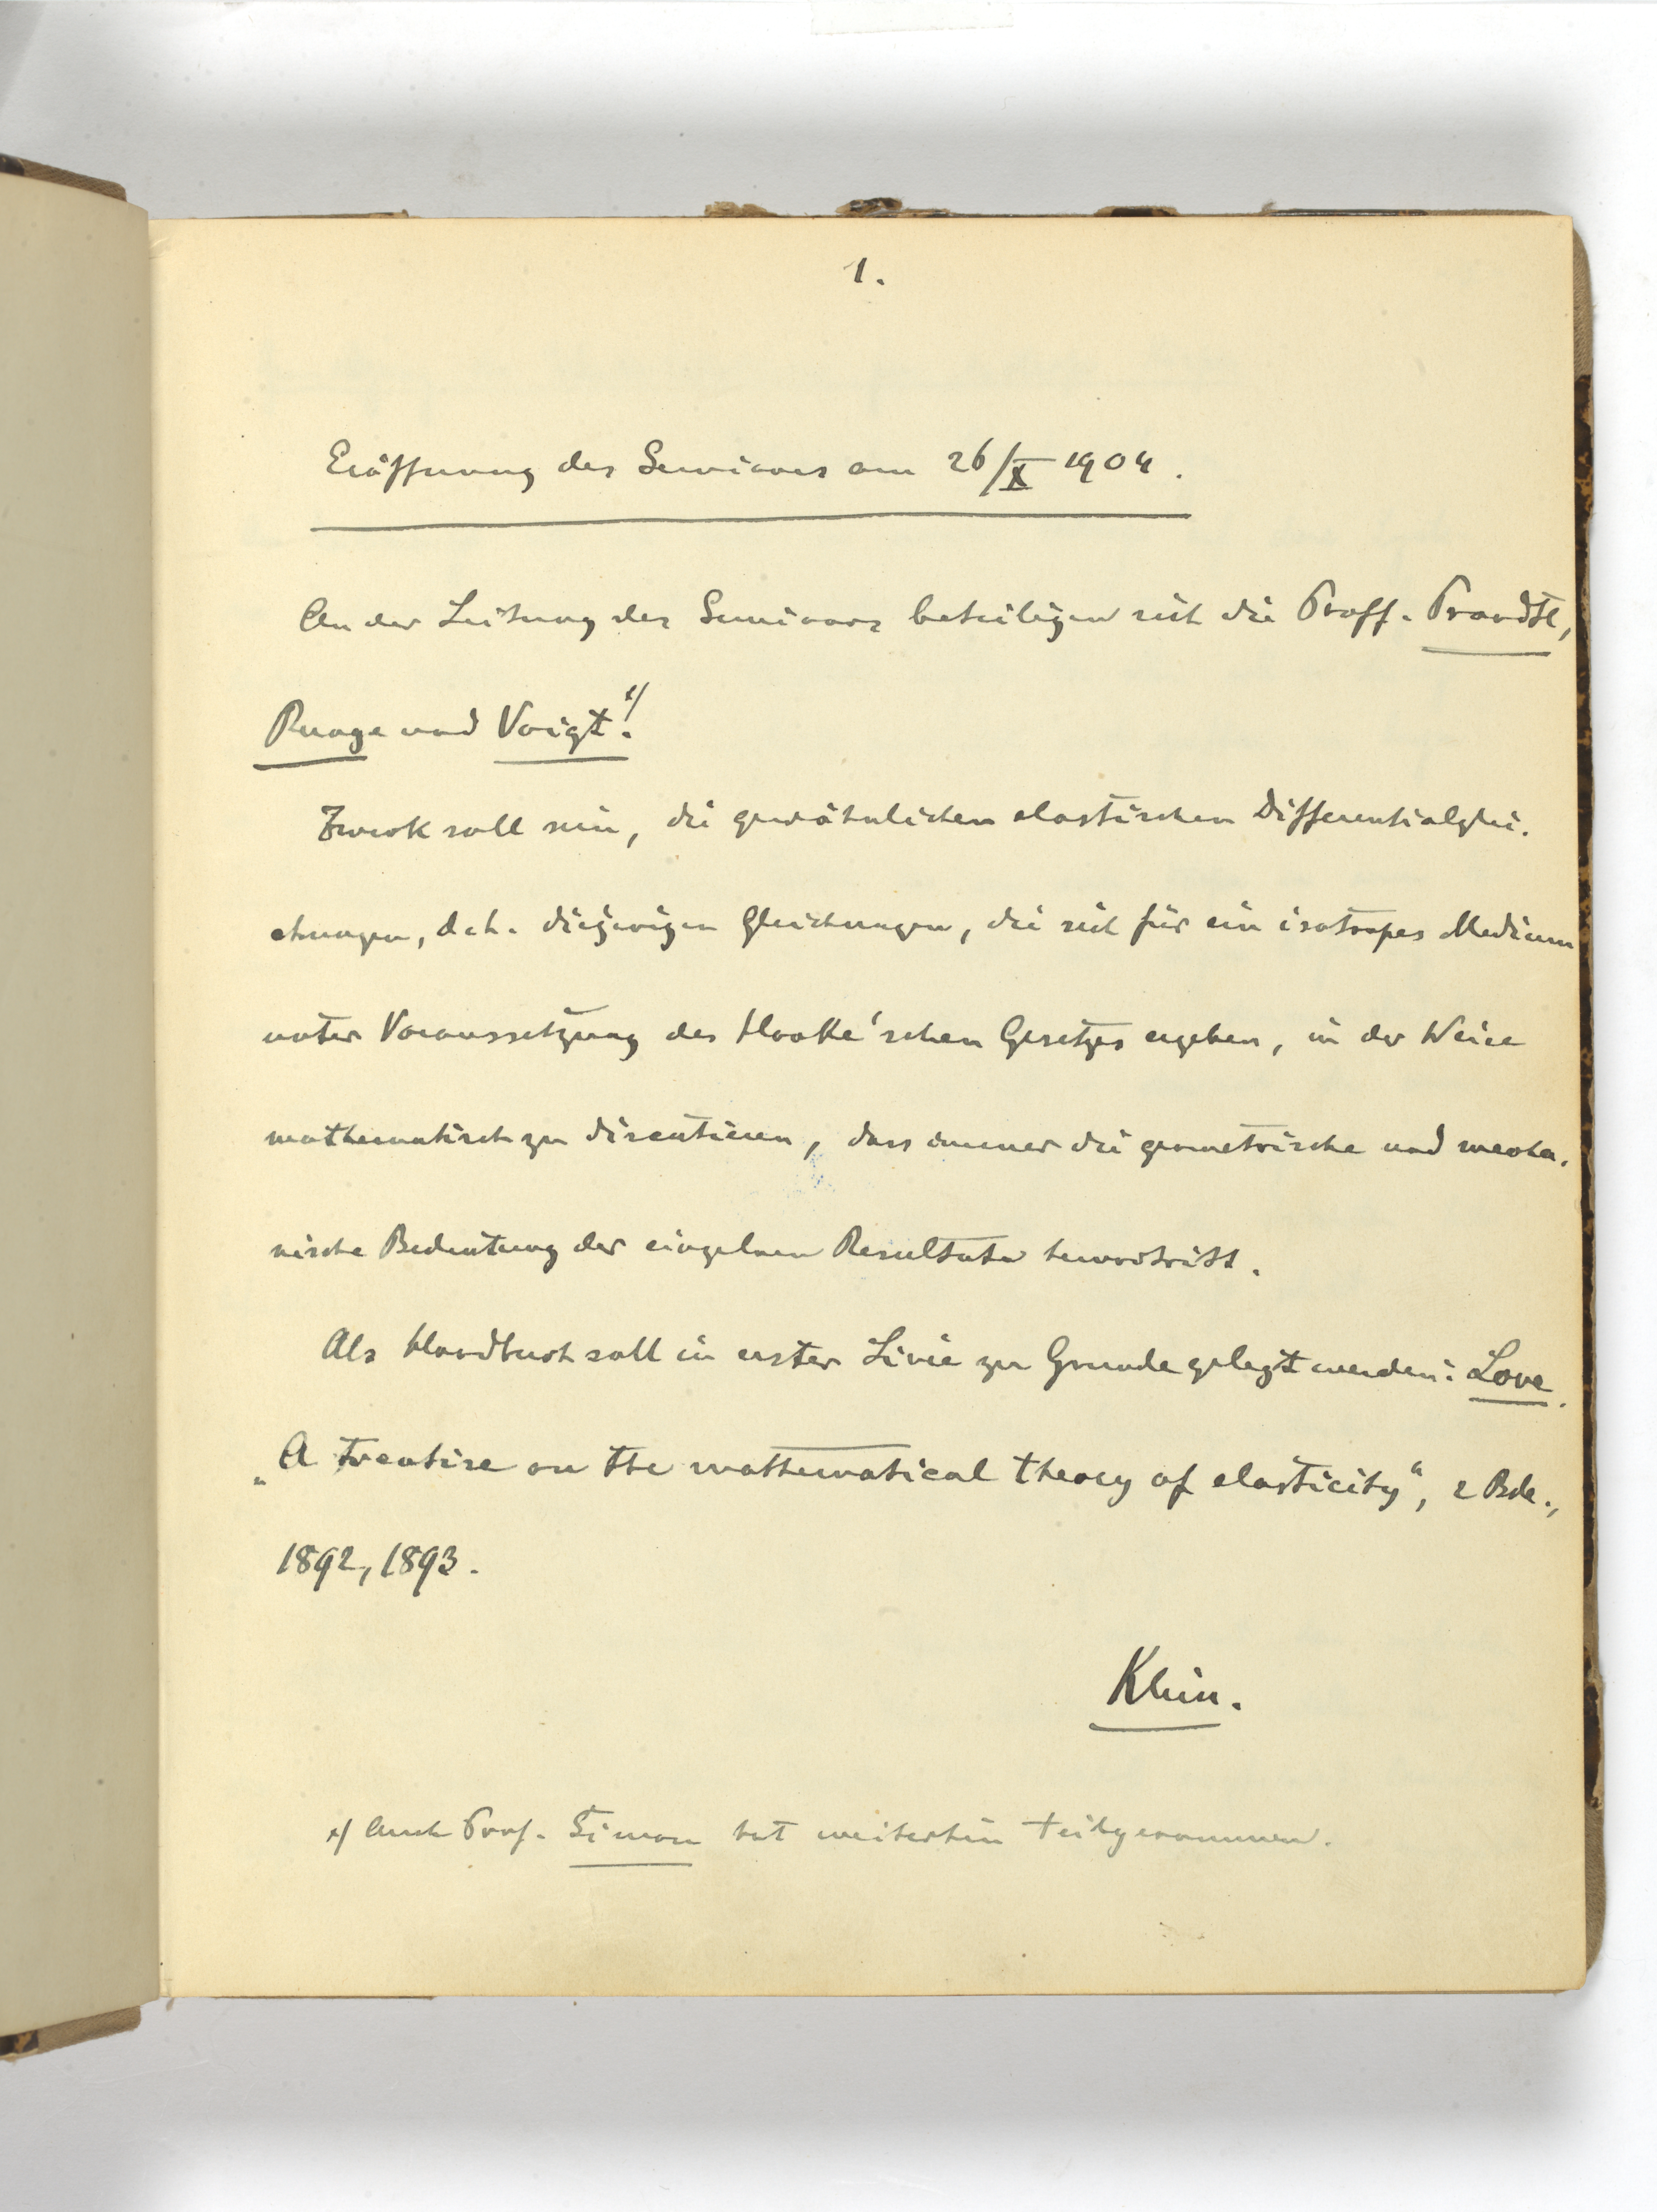 1.
Eröffnung des Seminars am 26/X 1904.
An der Leitung des Seminars beteiligen sich die Proff. Prandtl,
Runge und Voigt.x)
Zweck soll sein, die gewöhnlichen elastischen Differentialglei-
chungen, d. h. diejenigen Gleichungen, die sich für ein isotropes Medium
unter Voraussetzung des Hooke'schen Gesetzes ergeben, in der Weise
mathematisch zu discutieren, dass immer die geometrische und mecha-
nische Bedeutung der einzelnen Resultate hervortritt.
Als Handbuch soll in erster Linie zu Grunde gelegt werden: Love.
„A treatise on the mathematical theory of elasticity“, 2 Bde.,
1892, 1893.
Klein.
x) Auch Prof. Simon hat weiterhin teilgenommen.